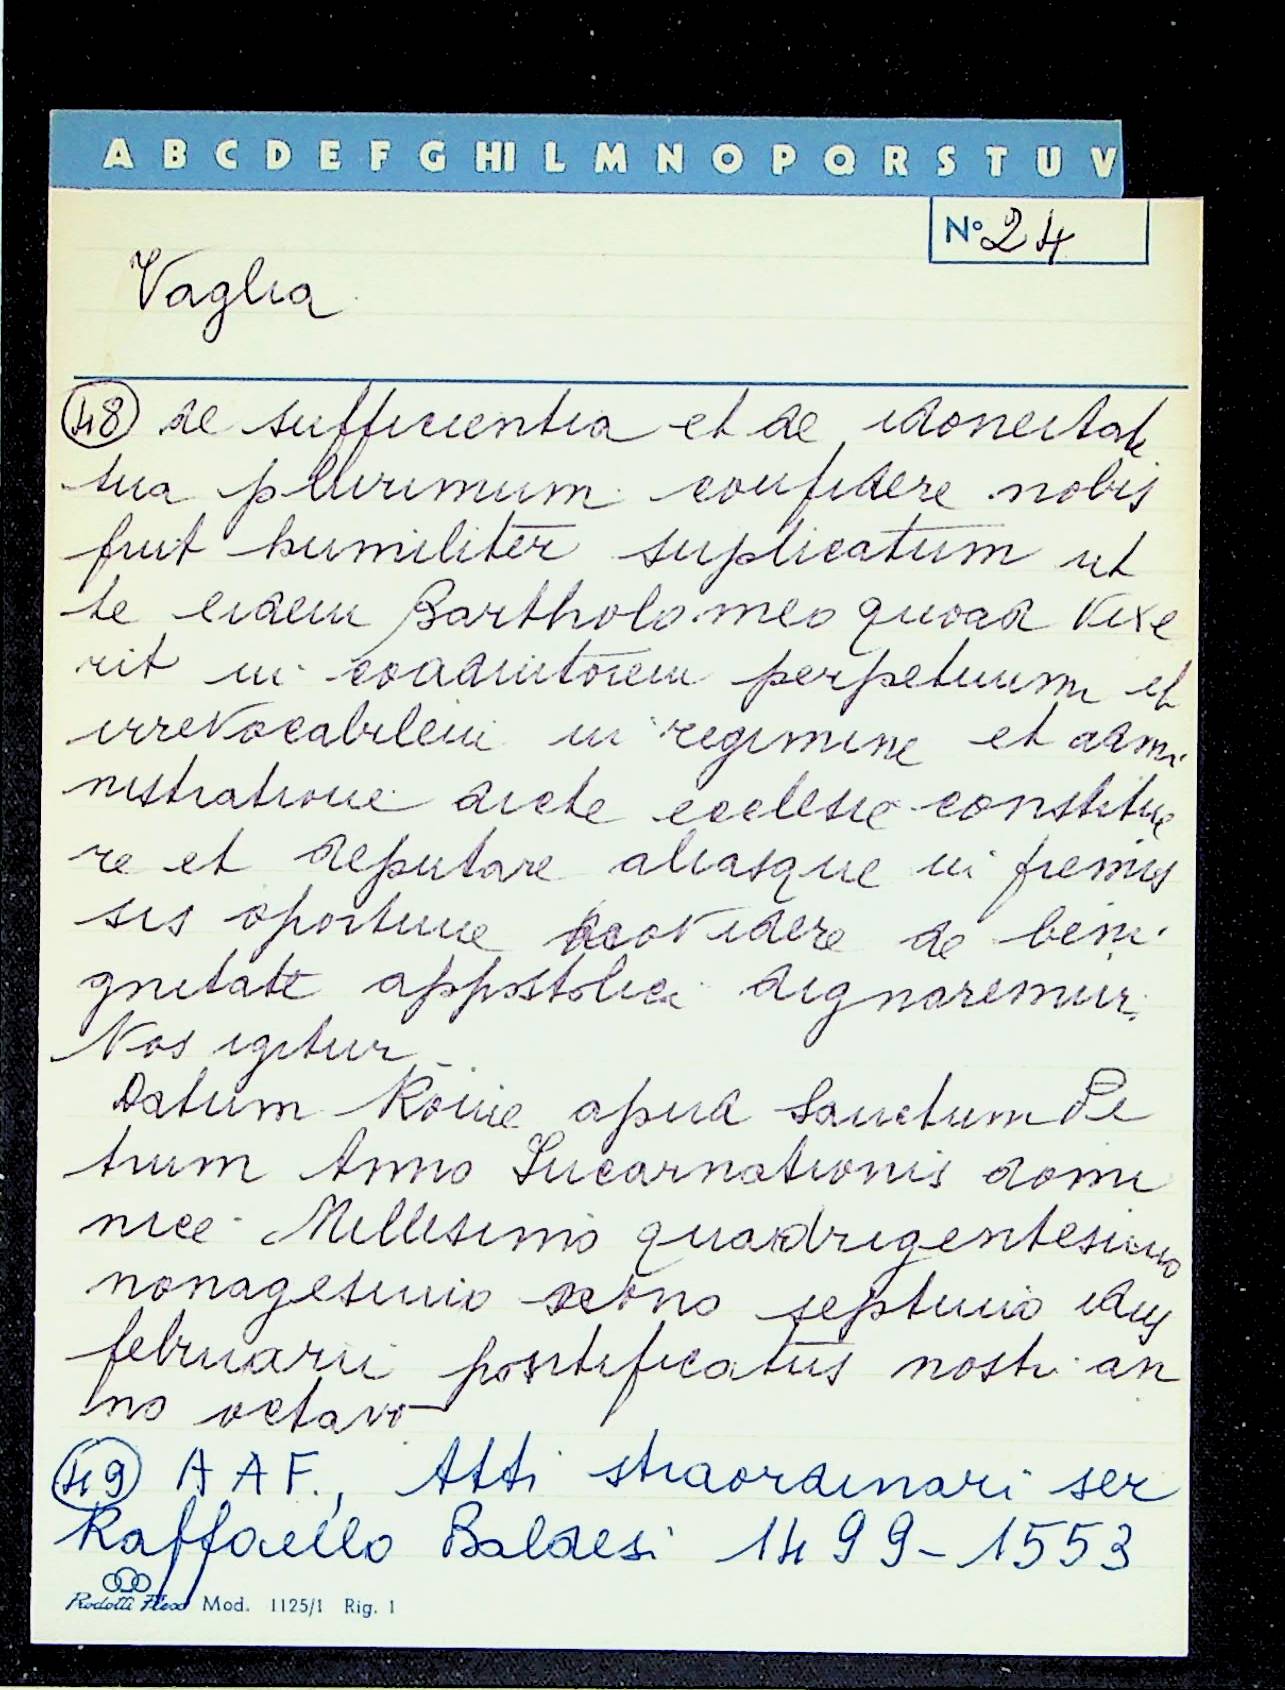 A B C D E F G HI L M N O P Q R S T U V
N° 24
Vaglia
48 de sufficientia et de idoneitate
tua plurimum confidere nobis
fuit humiliter suplicatum ut
te eidem Bartholomeo quoad vixe
rit in coadiutorem perpetuum et
irrevocabilem in regimine et admi
nistratione dicte ecclesie constitue
re et deputare aliasque in premis
sis oportune de beni
gnitate appostolica dignaremur.
Nos igitur
Datum Rome apud Sanctum Pe
trum Anno Incarnationis domi
nice Millesimo quadrigentesimo
nonagesimo septimo idus
februarii pontificatus nostri an
no octavo
49 A A F., Atti straordinari ser
Raffaello Baldesi 1499-1553
Rodotti Flex Mod. 1125/1 Rig. 1